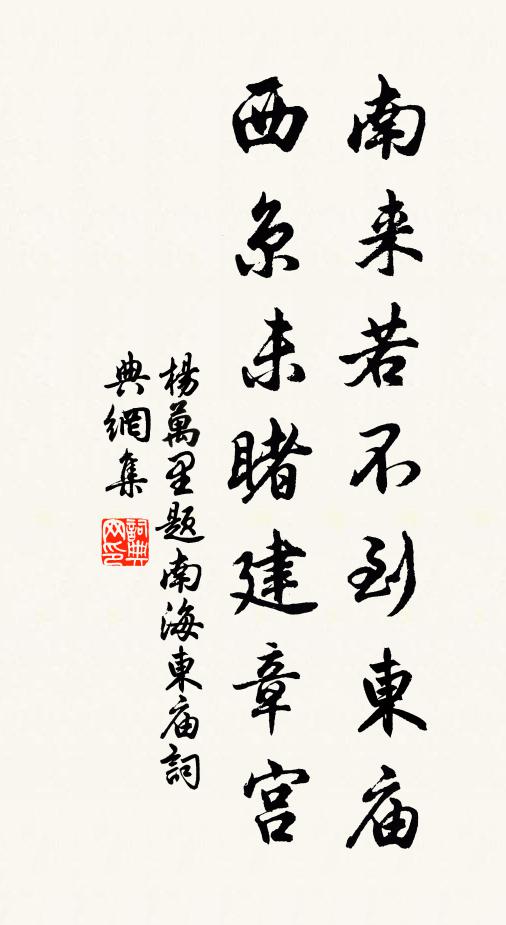 南来若不到東庙
西京未睹建章宫
楊萬里题南海東庙詞
典網集
詞典网印